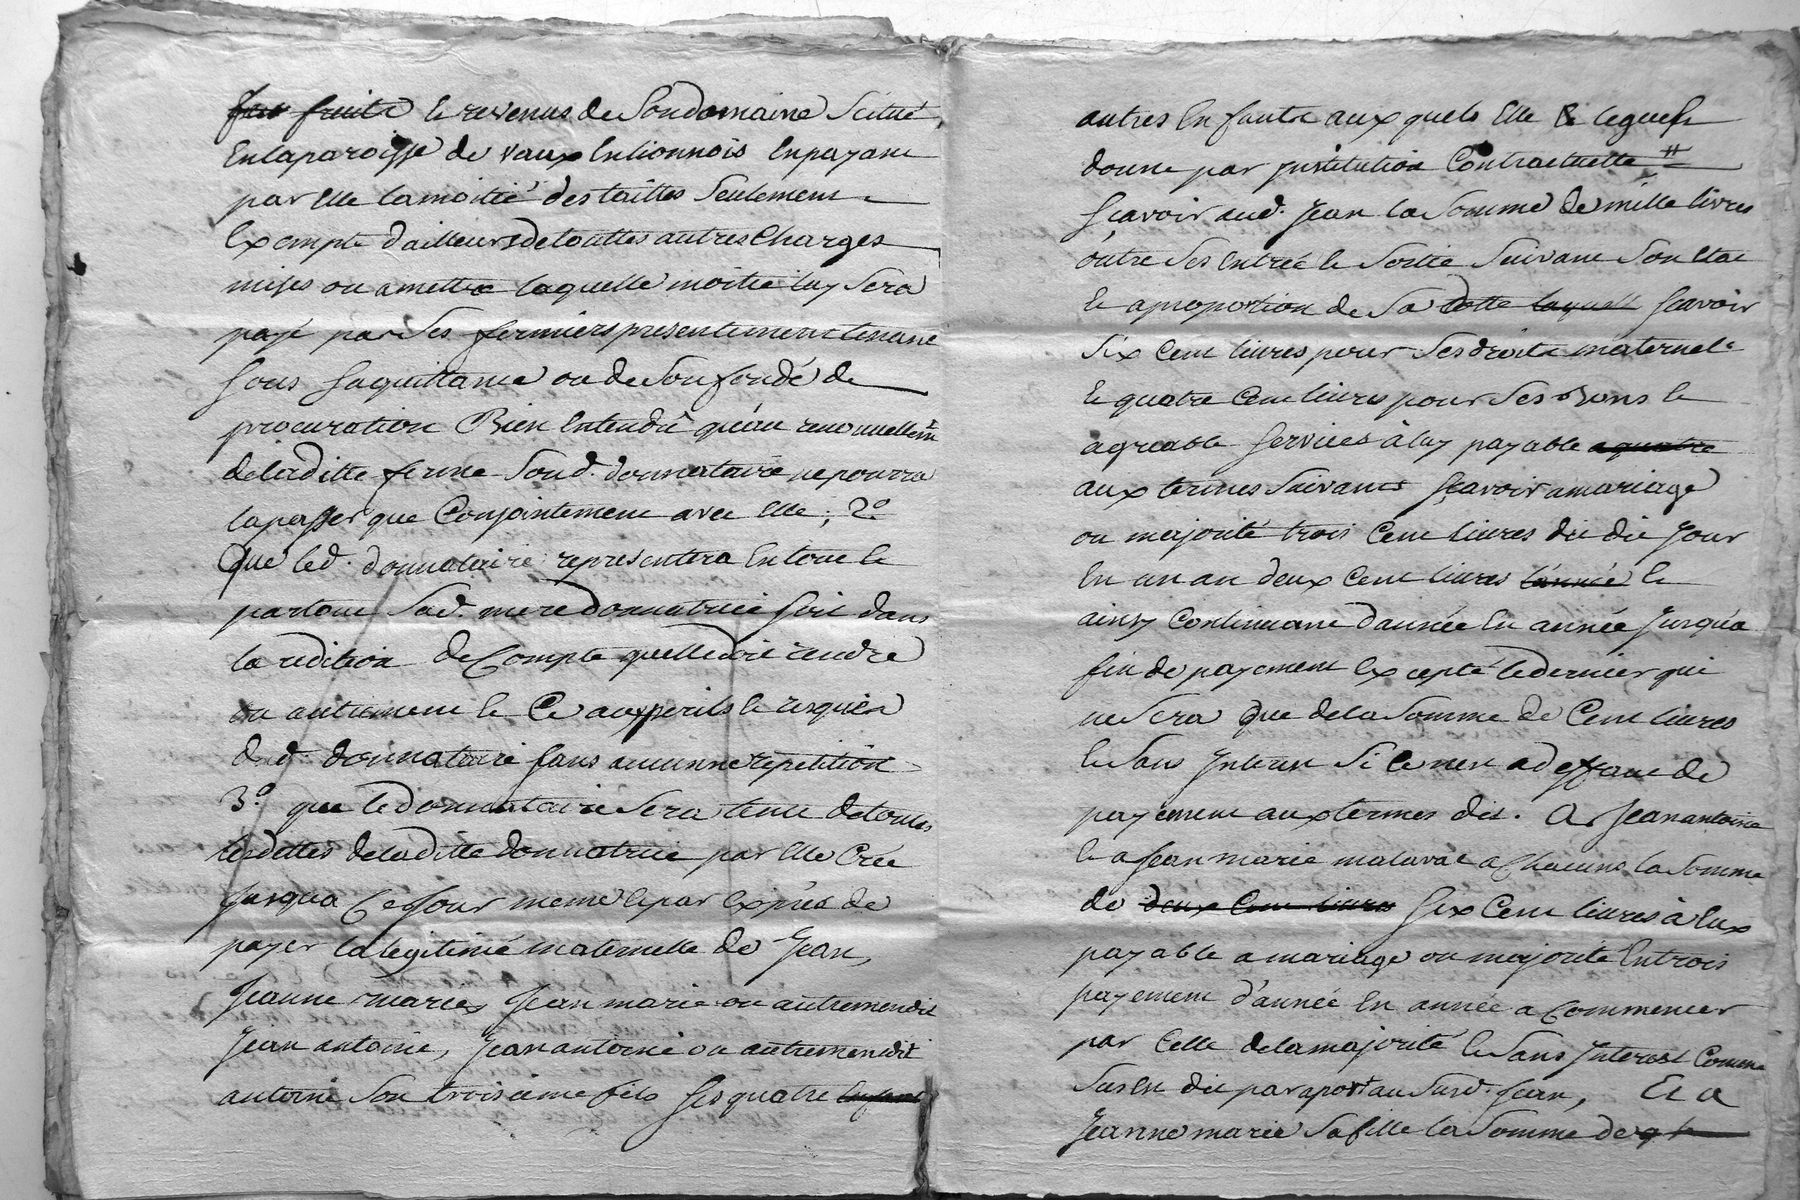 fruits & revenus de Son domaine Scitué
En la paroisse de vaux En lionnois En payant
par Elle la moitié des tailles Seulement
Exempte d'ailleurs de touttes autres Charges
mises ou a mettre laquelle moitié luy Sera
payé par Ses fermiers presentement tenant
Sous Sa quittance ou de Son fondé de
procuration Bien Entendu qu'au renouvellem.t
de laditte ferme Sond. donnataire ne pourra
la passer que Conjointement avec Elle ; 2.°
Que led. donnataire representera En tout &
partout Sad. mere donnatrice Soit dans
la redition de Compte quelle doit rendre
ou autrement & Ce aux perils & risques
d. d. donnataire Sans aucunne repetition
3.° que le donnataire Sera tenu de toutes
les dettes de laditte donnatrice par Elle Crée
Jusqua Ce Jour meme & par Exprès de
payer la legitime maternelle de Jean,
Jeanne marie, Jean marie ou autrement dit
Jean antoine, Jean antoine ou autrement dit
antoine Son troisieme fils Ses quatre Enfant
autres Enfants aux quels Elle & legue &
donne par institution Contractuelle #
Sçavoir aud. Jean la Somme de mille livres
outre Ses Entrée & Sortie Suivant Son Etat
& a proportion de Sa dotte laquelle Scavoir
Six Cent livres pour Ses droits maternels
& quatre Cent livres pour Ses Bons &
agreable Services à luy payable a quatre
aux termes Suivants Sçavoir a mariage
ou majorité trois Cent livres du dit Jour
En un an deux Cent livres l'année &
ainsy Continuant d'année En année Jusqu'a
fin de payement Excepté le dernier qui
ne Sera que de la Somme de Cent livres
& Sans Interest Si Ce n'est a deffaut de
payement aux termes dit. A Jean antoine
& a Jean marie malaval a Chacuns la Somme
de deux Cent livres Six Cent livres à Eux
payable a mariage ou majorité En trois
payement d'année En année a Commencer
par Celle de la majorité & Sans Interest Comme
Sus En dit par aport au Susd. Jean, Et a
Jeanne marie Sa fille la Somme de